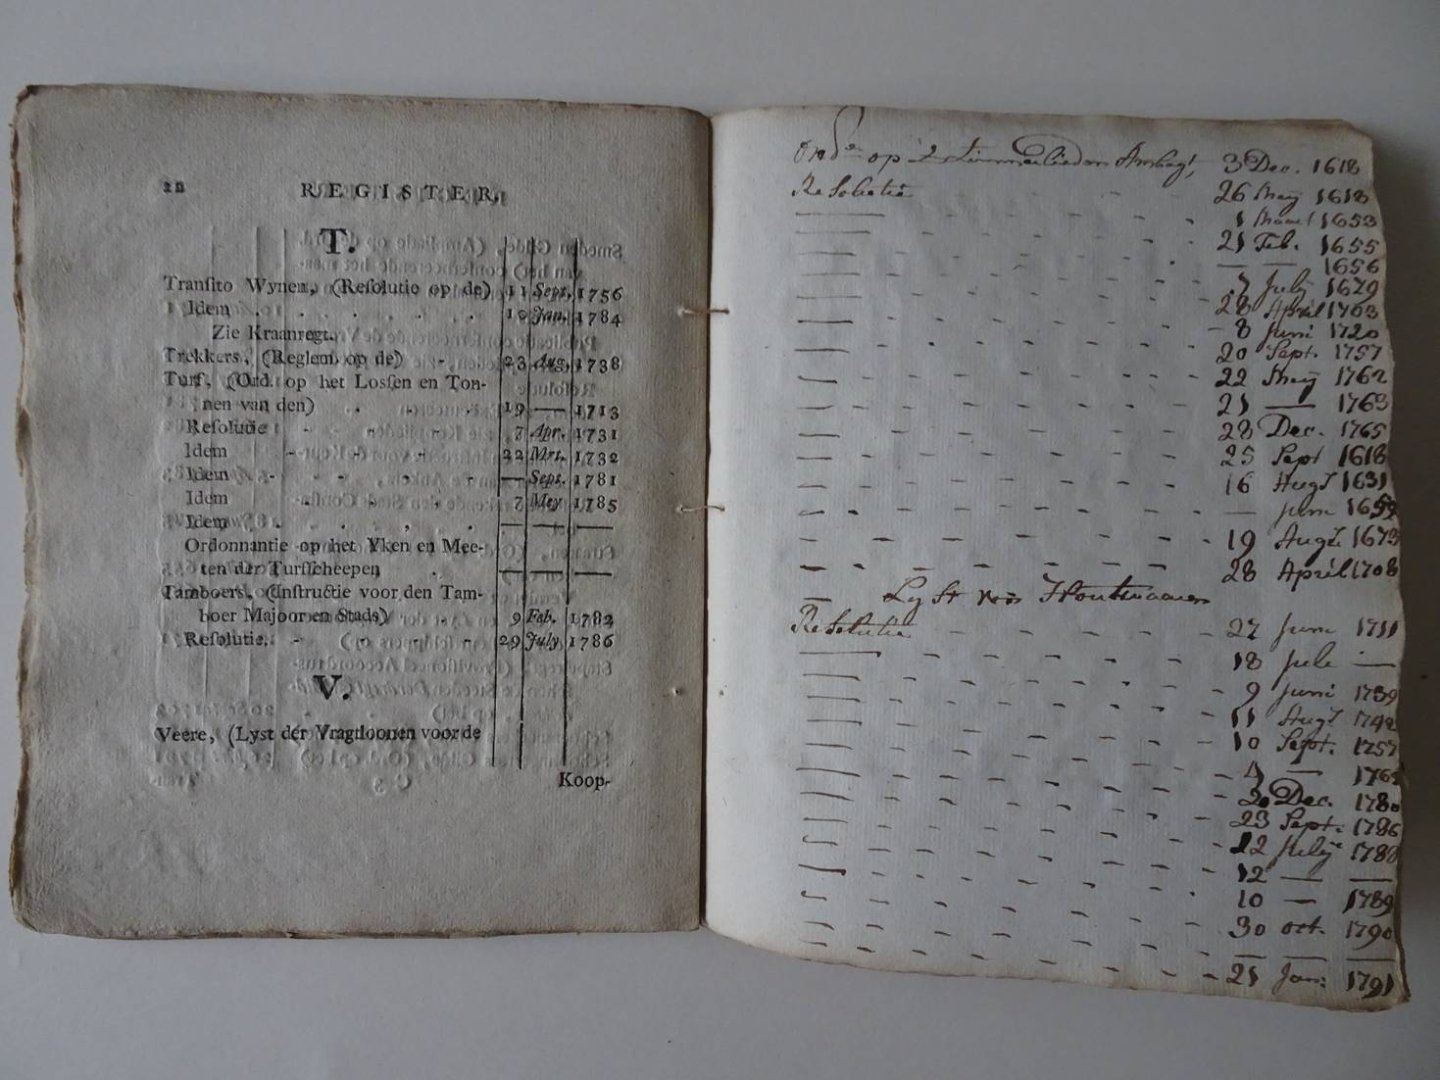 22 REGISTER
T.
Tranſito Wynen, (Reſolutie op de) 11 Sept. 1756
Idem . . . . . . 1784
Zie Kraanregt.
Trekkers, (Reglem. op de) - 23 Aug. 1738
Turf, (Ord. op het Loſſen en Ton-
nen van den) 19 — 1713
Reſolutie - - - 7 Apr. 1731
Idem - - - - 22 Mrt. 1732
Idem - - - - — Sept. 1781
Idem - - - - 7 Mey 1785
Idem . . . . . — — —
Ordonnantie op het Yken en Mee-
ten der Turfſcheepen . — — —
Tamboers, (Inſtructie voor den Tam-
boer Majoor en Stads) 9 Feb. 1782
Reſolutie. - - - 29 July 1786
V.
Veere, (Lyst der Vragtloonen voor de
Koop-
op 't Timmerlieden Ambagt, 3 Dec. 1618
Resolutie - - - 26 Meij 1618
— - - - 1 Maart 1653
— - - - 21 Feb. 1655
— - - - — — 1656
— - - - 7 July 1679
— - - - 28 April 1703
— - - - 8 Juni 1720
— - - - 20 Sept. 1757
— - - - 22 Meij 1762
— - - - 21 — 1763
— - - - 28 Dec. 1765
— - - - 25 Sept 1618
— - - - 16 Augt 1631
— - - - — Juni
— - - - 19 Augt. 1673
— - - - 28 April 1708
— Lyst voor
Resolutie - - - 27 Juni 1711
— - - - 18 Juli —
— - - - 9 Juni 1739
— - - - 11 Augt 1742
— - - - 10 Sept. 1757
— - - - 4 —
— - - - 20 Dec. 1780
— - - - 23 Sept. 1786
— - - - 22 July 1788
— - - - 12 — —
— - - - 10 — 1789
— - - - 30 oct. 1790
— - - - — — —
— - - - 21 Jan: 1791